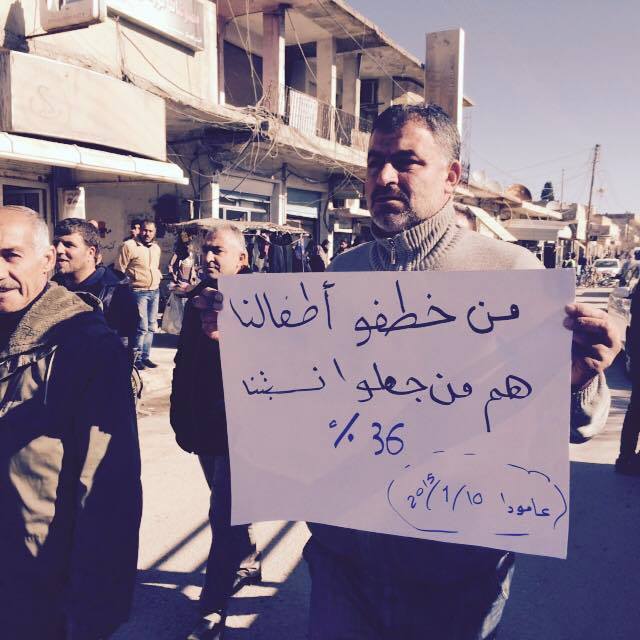 من خطفو أطفالنا
هم من جعلوا نسبتنا
36 %
(عامودا 10/1/2015)